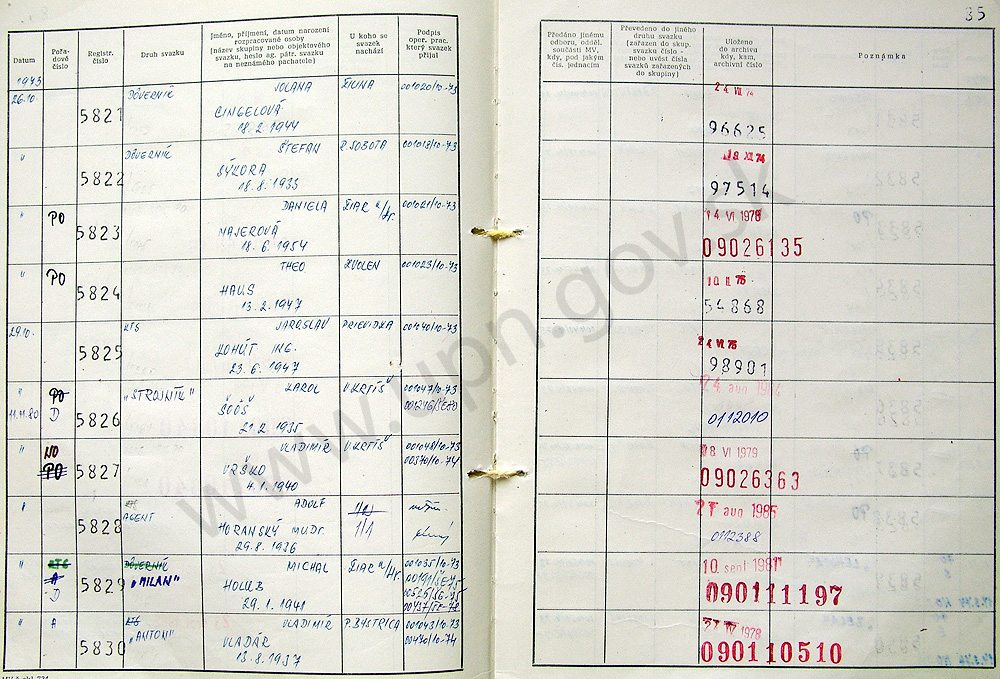 35
Datum
Pořa-
dové
číslo
Registr.
číslo
Druh svazku
Jméno, příjmení, datum narození
rozpracované osoby
(název skupiny nebo objektového
svazku, heslo ag. pátr. svazku
na neznámého pachatele)
U koho se
svazek
nachází
Podpis
oper. prac.
který svazek
přijal
Předáno jinému
odboru, odděl.
součásti MV,
kdy, pod jakým
čís. jednacím
Převedeno do jiného
druhu svazku
(zařazen do skup.
svazku číslo -
nebo uvést čísla
svazků zařazených
do skupiny)
Uloženo
do archivu
kdy, kam,
archivní číslo
Poznámka
1973
26.10 5821 DÔVERNÍK JOLANA ŽILINA 001020/10-73 24 VII 74
CINGELOVÁ 96625
18.2.1944
" 5822 DÔVERNÍK ŠTEFAN R. SOBOTA 001018/10-73 XI 74
SÝKORA 97514
18.8.1933
" PO 5823 DANIELA ŽIAR n/Hr. 001021/10-73 14 VI 1978
MAJEROVÁ 09026135
18.6.1954
" PO 5824 THEO ZVOLEN 001023/10-73 10 II 76
HAUS 54868
13.2.1947
29.10. 5825 KTS JAROSLAV PRIEVIDZA 001040/10-73 24 VI 75
KOHÚT ING. 98901
23.6.1947
" PO 5826 "STROJNÍK" KAROL V. KRTÍŠ 001047/10-73 24 aug
11.11.80 D ŠOÓŠ 0112010
21.2.1935
" NO 5827 VLADIMÍR V. KRTÍŠ 001048/10-73 08 VI 1979
PO VRŠKO 00370/10-74 09026363
4.1.1940
" 5828 KTS ADOLF 27 aug 1985
AGENT HORANSKÝ MUDr. 11/1 0112388
29.8.1936
" KTS 5829 DÔVERNÍK MICHAL ŽIAR n/Hr. 001035/10-73 10 sept 1981
A "MILAN" HOLUB 090111197
D 29.1.1941
" A 5830 KTS VLADIMÍR P. BYSTRICA 001043/10-73 IV 1978
"ANTON" VLADÁR 00470/10-74 090110510
13.8.1937
www.upn.gov.sk